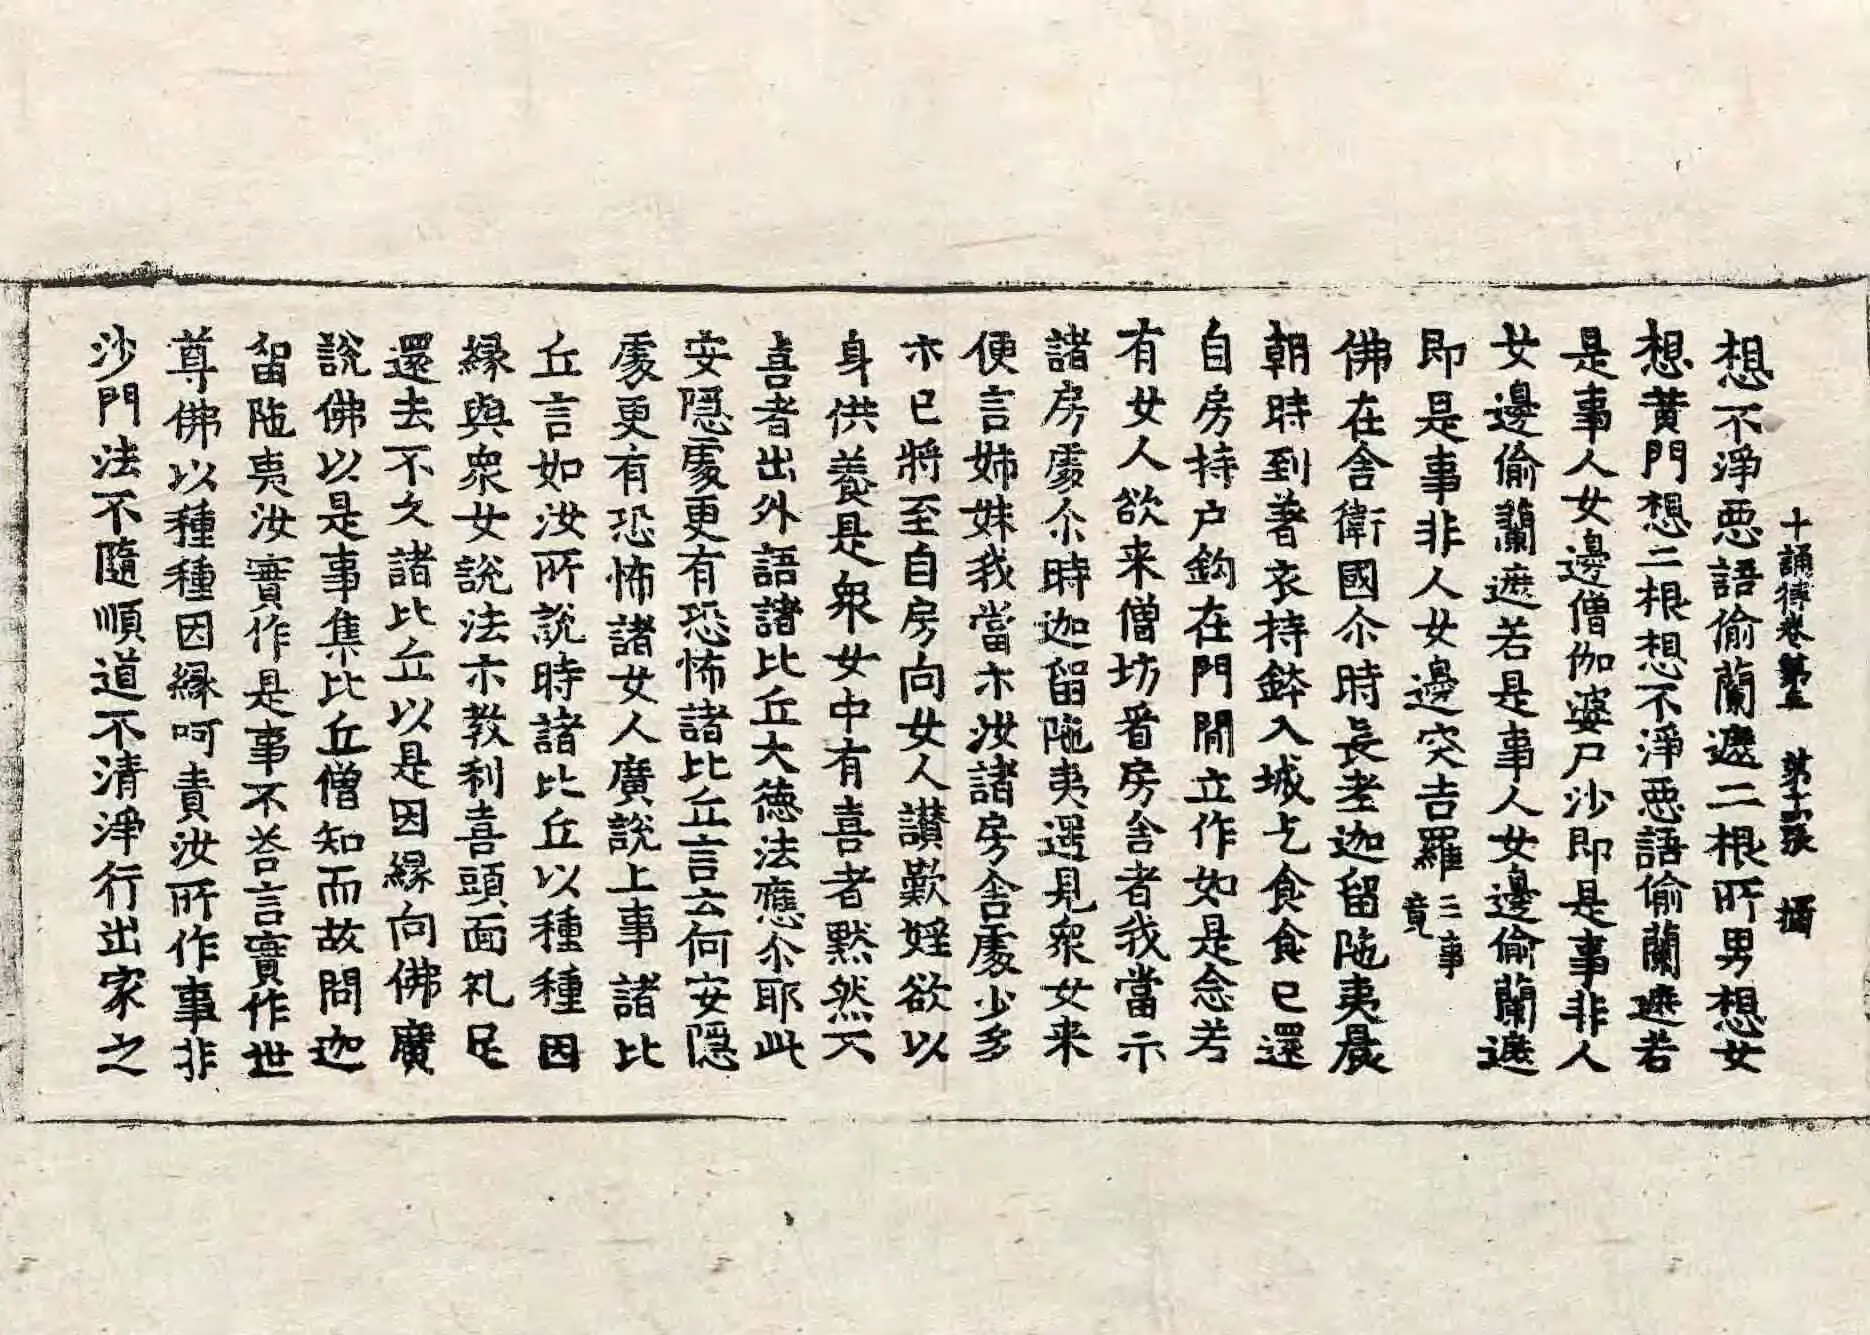 十誦律卷第三　第十五張　攝
想不淨惡語偷蘭遮二根所男想女
想黃門想二根想不淨惡語偷蘭遮若
是事人女邊僧伽婆尸沙即是事非人
女邊偷蘭遮若是事人女邊偷蘭遮
即是事非人女邊突吉羅三事竟
佛在舍衛國尒時長老迦留陁夷晨
朝時到著衣持鉢入城乞食食已還
自房持户鈎在門閒立作如是念若
有女人欲来僧坊看房舍者我當示
諸房處尒時迦留陁夷遥見衆女来
便言姊妹我當示汝諸房舍處少多
示已將至自房向女人讃歎婬欲以
身供養是衆女中有喜者黙然不
喜者出外語諸比丘大德法應尒耶此
安隱處更有恐怖諸比丘言云何安隱
處更有恐怖諸女人廣說上事諸比
丘言如汝所說時諸比丘以種種因
緣與衆女說法示教利喜頭面礼足
還去不久諸比丘以是因緣向佛廣
說佛以是事集比丘僧知而故問迦
留陁夷汝實作是事不荅言實作世
尊佛以種種因緣呵責汝所作事非
沙門法不隨順道不清淨行出家之